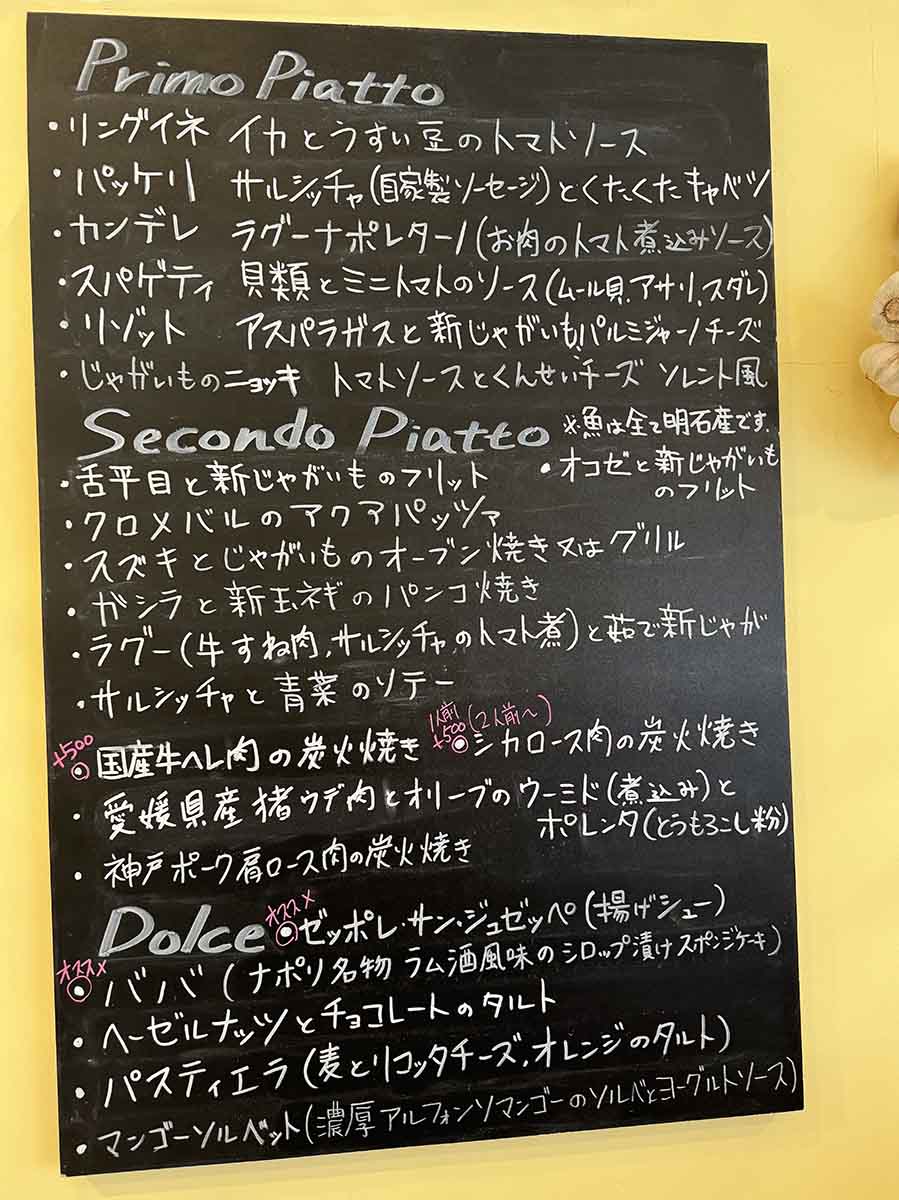 Primo Piatto
・リングイネ イカとうすい豆のトマトソース
・パッケリ サルシッチャ(自家製ソーセージ)とくたくたキャベツ
・カンデレ ラグーナポレターノ(お肉のトマト煮込みソース)
・スパゲティ 貝類とミニトマトのソース(ムール貝、アサリ、スダレ)
・リゾット アスパラガスと新じゃがいも、パルミジャーノチーズ
・じゃがいものニョッキ トマトソースとくんせいチーズ ソレント風
Secondo Piatto
※魚は全て明石産です.
・舌平目と新じゃがいものフリット
・オコゼと新じゃがいも
のフリット
・クロメバルのアクアパッツァ
・スズキとじゃがいものオーブン焼き又はグリル
・ガシラと新玉ネギのパンコ焼き
・ラグー(牛すね肉,サルシッチャのトマト煮)と茹で新じゃが
・サルシッチャと青菜のソテー
+500
◎国産牛ヘレ肉の炭火焼き
1人前 +500 (2人前〜)
◎シカロース肉の炭火焼き
・愛媛県産猪ウデ肉とオリーブのウーミド(煮込み)と
ポレンタ(とうもろこし粉)
・神戸ポーク肩ロース肉の炭火焼き
Dolce
オススメ
◎ゼッポレ・サン・ジュゼッペ(揚げシュー)
オススメ
◎ババ(ナポリ名物 ラム酒風味のシロップ漬けスポンジケーキ)
・ヘーゼルナッツとチョコレートのタルト
・パスティエラ(麦とリコッタチーズ,オレンジのタルト)
・マンゴーソルベット(濃厚アルフォンソマンゴーのソルベとヨーグルトソース)